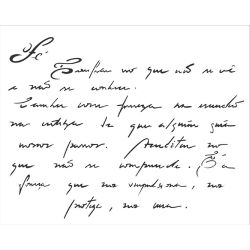 Fé
É confiar no que não se vê
e não se conhece.
Caminhar com firmeza na escuridão
na certeza de que alguém guia
nossos passos. Acreditar no
que não se compreende. É a
força que me impulsiona, me
protege, me